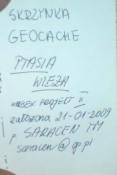 SKRZYNKA
GEOCACHE
PTASIA
WIEŻA
PROJECT II
założona 21-01-2009
p. SARACEN MM
saracen@op.pl